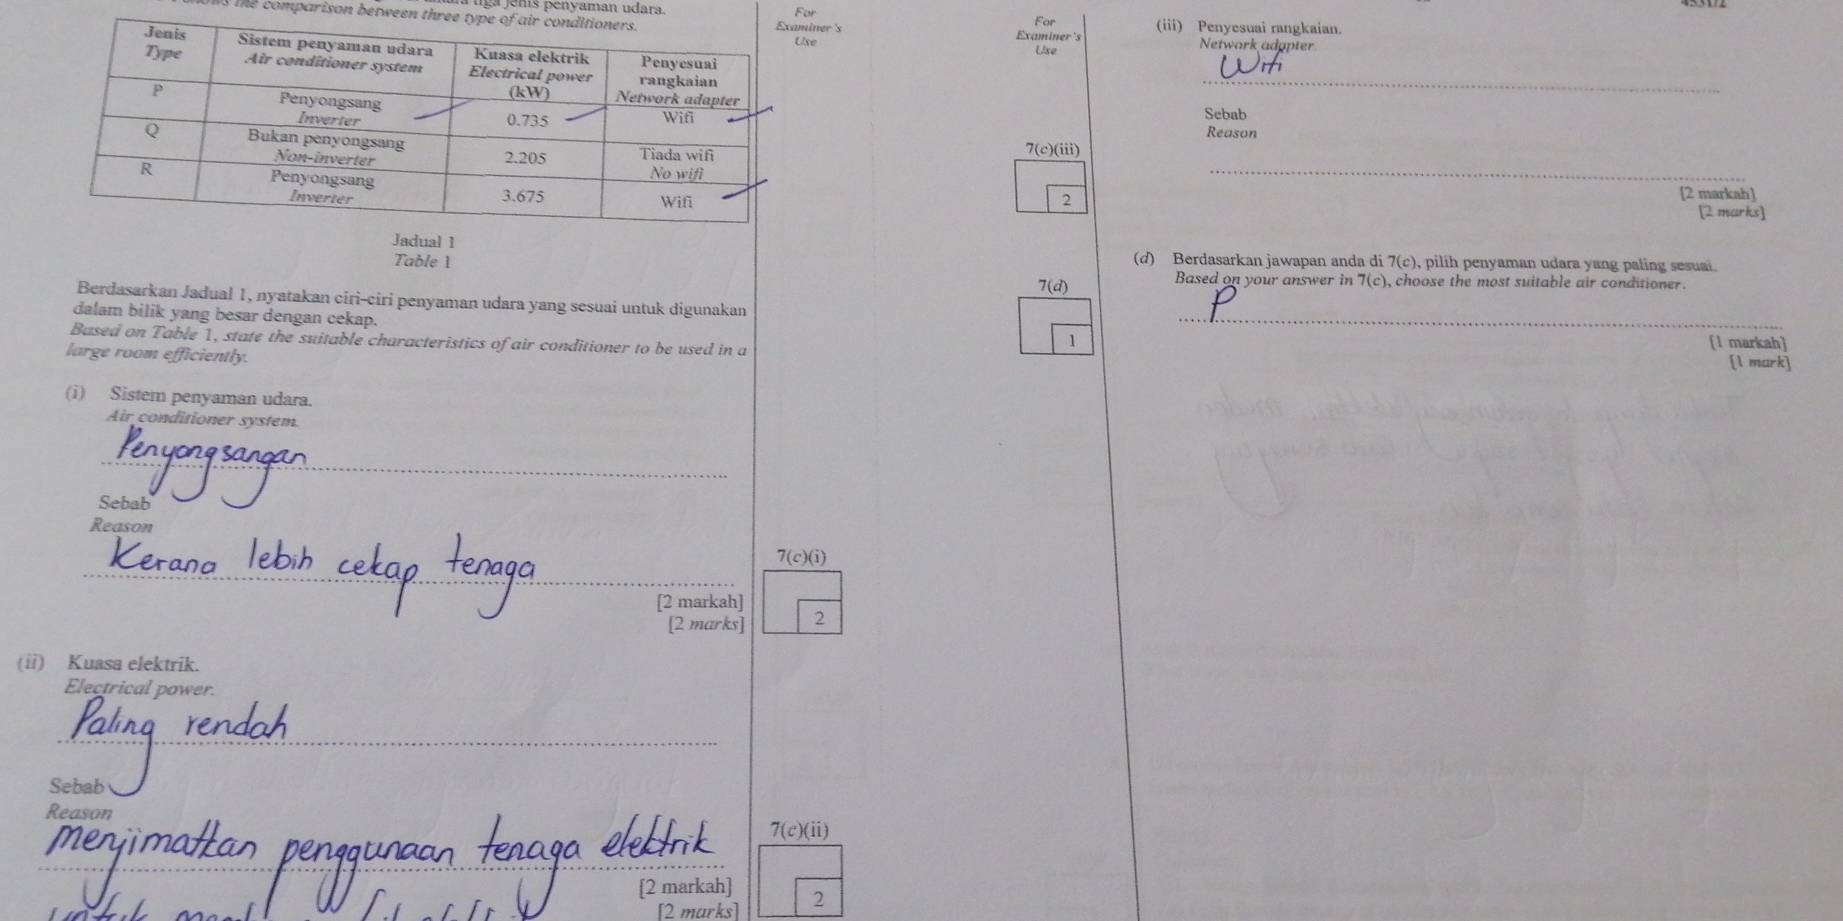 the comparison between three type of air conditioners.
Jenis
Type
Sistem penyaman udara
Air conditioner system
Kuasa elektrik
Electrical power
(kW)
Penyesuai
rangkaian
Network adapter
P
Penyongsang
Inverter
0.735
Wifi
Q
Bukan penyongsang
Non-inverter
2.205
Tiada wifi
No wifi
R
Penyongsang
Inverter
3.675
Wifi
Jadual 1
Table 1
Berdasarkan Jadual 1, nyatakan ciri-ciri penyaman udara yang sesuai untuk digunakan
dalam bilik yang besar dengan cekap.
Based on Table 1, state the suitable characteristics of air conditioner to be used in a
large room efficiently.
(i) Sistem penyaman udara.
Air conditioner system.
Penyongsangan
Sebab
Reason
Kerana lebih cekap tenaga
[2 markah]
[2 marks]
7(c)(i)
2
(ii) Kuasa elektrik.
Electrical power.
Paling rendah
Sebab
Reason
Menjimatkan penggunaan tenaga elektrik
[2 markah]
[2 marks]
7(c)(ii)
2
For
Examiner's
Use
For
Examiner's
Use
(iii) Penyesuai rangkaian.
Network adapter
Wifi
Sebab
Reason
7(c)(iii)
2
[2 markah]
[2 marks]
(d) Berdasarkan jawapan anda di 7(c), pilih penyaman udara yang paling sesuai.
Based on your answer in 7(c), choose the most suitable air conditioner.
P
7(d)
1
[1 markah]
[1 mark]